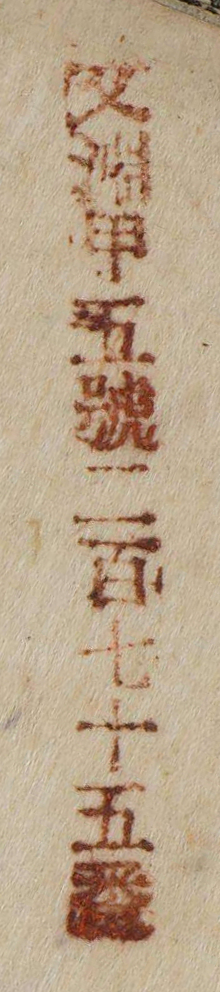 文淵甲五號二百七十五發